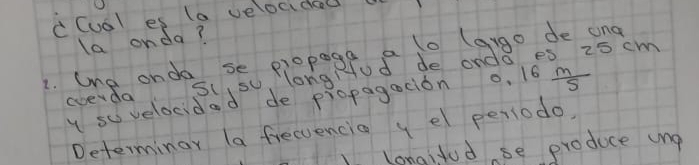 ¿Cuál es la velocidad
la onda?
2. Una onda se propaga a lo largo de una
cuerda si su longitud de onda es 25 cm
y su velocidad de propagación 0.16 m/s
Determinar la frecuencia y el periodo.
longitud se produce una